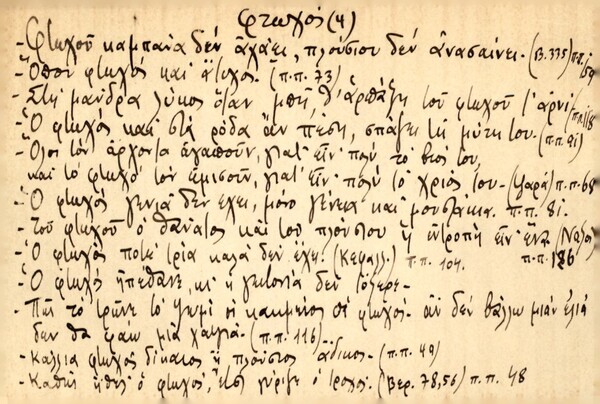 φτωχός (4)
- Φτωχοῦ καμπάνα δέν ἀχάει, πλούσιου δέν ἀνασαίνει. (Β. 335) π.π. 59
- Ὅπου φτωχός καί ἄτυχος. (π.π. 73)
- Στή μάνδρα λύκος ὅταν μπῆ, θ' ἁρπάξη τοῦ φτωχοῦ τ' ἀρνί π.π. 118
- Ὁ φτωχός καί στά ρόδα ἄν πέση, σπάζει τή μύτη του. (π.π. 91)
- Ὅλοι τόν ἄρχοντα ἀγαποῦν, γιατ' εἶν' πολύ τό βιός του,
καί τό φτωχό τόν ἐμισοῦν, γιατ' εἶν' πολύ τό χρέος του - π.π. 68
- Ὁ φτωχός γενιά δεν έχει, μόνο γένεια και μουστάκια. π.π. 81.
- Τοῦ φτωχοῦ ὁ θάνατος καί τοῦ πλούσιου ἡ ντροπή εἶν' ἕνα (Νάξο)
- Ὁ φτωχός ποτέ τρία καλά δέν ἔχει. (Κεφαλλ.) π.π. 104. π.π. 126
- Ὁ φτωχός ἠπέθανε, κι' ἡ γειτονιά δέν τὄξερε -
- Πῶς τό τρῶτε τό ψωμί οἱ καημένοι οἱ φτωχοί. ἄν δέν βάλλω μιάν ἐλιά
δεν θα φάω μιά χαψιά. (π.π. 116)
- Κάλλια φτωχός δίκαιος ἤ πλούσιος ἄδικος. (π.π. 49)
- Καθώς ἤθελ' ὁ φτωχός, ἔτσι γύριζε ὁ τροχός. (Βερ. 78,56) π.π. 48